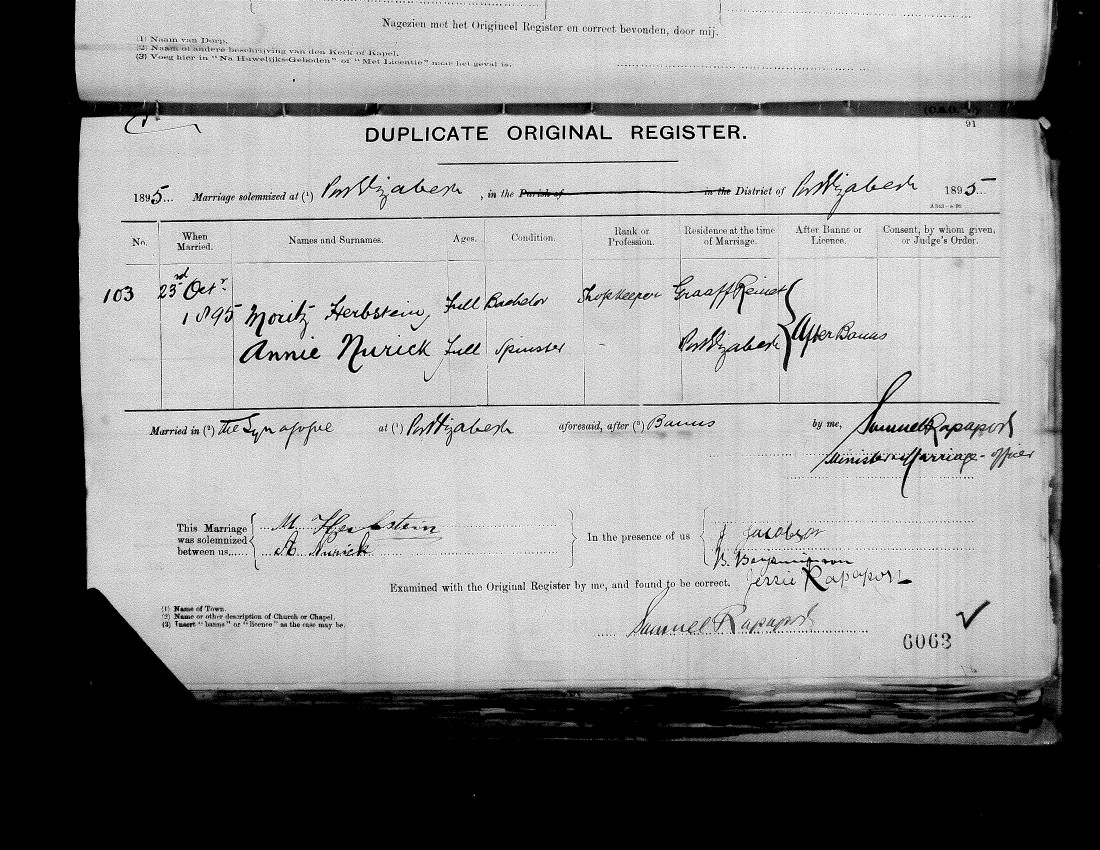 Nagezien met het Origineel Register en correct bevonden, door mij.
(1) Naam van Dorp.
(2) Naam of andere beschrijving van den Kerk of Kapel.
(3) Voeg hier in "Na Huwelijks-Geboden" of "Met Licentie" naar het geval is.
91
DUPLICATE ORIGINAL REGISTER.
1895... Marriage solemnized at (1) Port Elizabeth, in the Parish of in the District of Port Elizabeth 1895...
No. When Married. Names and Surnames. Ages. Condition. Rank or Profession. Residence at the time of Marriage. After Banns or Licence. Consent, by whom given, or Judge's Order.
103 23rd Octr 1895 Moritz Herbstein, Full Bachelor Shopkeeper Graaff Reinet
Annie Nurick Full Spinster - Port Elizabeth After Banns
Married in (2) The Synagogue at (1) Port Elizabeth aforesaid, after (3) Banns by me, Samuel Rapaport
Minister & Marriage-officer
This Marriage was solemnized between us...... M. Herbstein
A. Nurick
In the presence of us J Jacobson
B. Benjaminson
Jessie Rapaport
Examined with the Original Register by me, and found to be correct.
(1) Name of Town.
(2) Name or other description of Church or Chapel.
(3) Insert "banns" or "licence" as the case may be.
Samuel Rapaport
6063